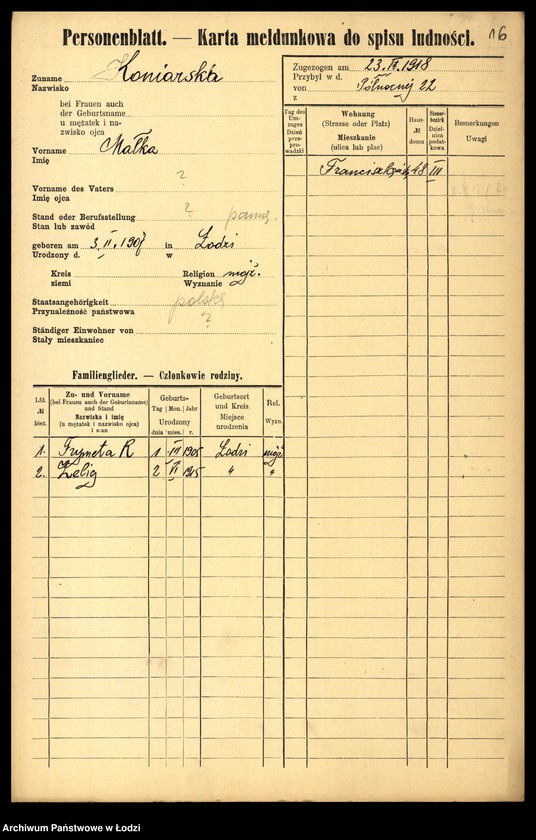 16
Personenblatt. — Karta meldunkowa do spisu ludności.
Zuname Koniarska
Nazwisko
bei Frauen auch
der Geburtsname
u mężatek i na-
zwisko ojca
Vorname Małka
Imię
Vorname des Vaters ?
Imię ojca
Stand oder Berufsstellung ? panna.
Stan lub zawód
geboren am 3. II. 1907 in Łodzi
Urodzony d. w
Kreis Religion mojż.
ziemi Wyznanie
Staatsangehörigkeit polska
Przynależność państwowa ?
Ständiger Einwohner von
Stały mieszkaniec
Zugezogen am 23. IV. 1918
Przybył w d.
von Północnej 22
z
Tag des Um-zuges Dzień prze-prowadzki
Wohnung (Strasse oder Platz) Mieszkanie (ulica lub plac)
Haus- № domu
Steuer-bezirk Dziel-nica podat-kowa
Bemerkungen Uwagi
48 III
Familienglieder. — Członkowie rodziny.
Lfd. № bież.
Zu- und Vorname (bei Frauen auch der Geburtsname) und Stand Nazwisko i imię (u mężatek i nazwisko ojca) i stan
Geburts- Tag Mon. Jahr Urodzony dnia mies. r.
Geburtsort und Kreis. Miejsce urodzenia
Rel. Wyzn.
1. R 1 III 1905 Łodzi mojż
2. Zelig 2 VI 1915 " "
Archiwum Państwowe w Łodzi